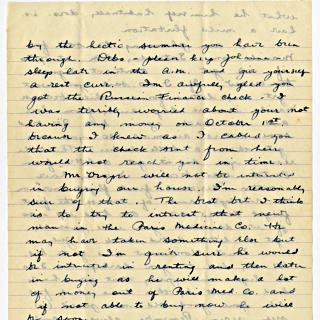 by the hectic summer you have been
through. Debs - please keep Johanna &
sleep late in the A.M. and give yourself
a rest cure. I'm awfully glad you
got the Russian Finance check - I
was terribly worried about your not
having any money on October 1st
because I knew as I cabled you
that the check sent from here
would not reach you in time.
Mr will not be interested
in buying our house. I'm reasonably
sure of that. The best bet I think
is to try to interest that new
man in the Paris Medicine Co. He
may have taken something else but
if not I'm quite sure he would
be interested in renting and then later
in buying as he will make a lot
of money out of Paris Med. Co. and
if not able to buy now he will
be soon.